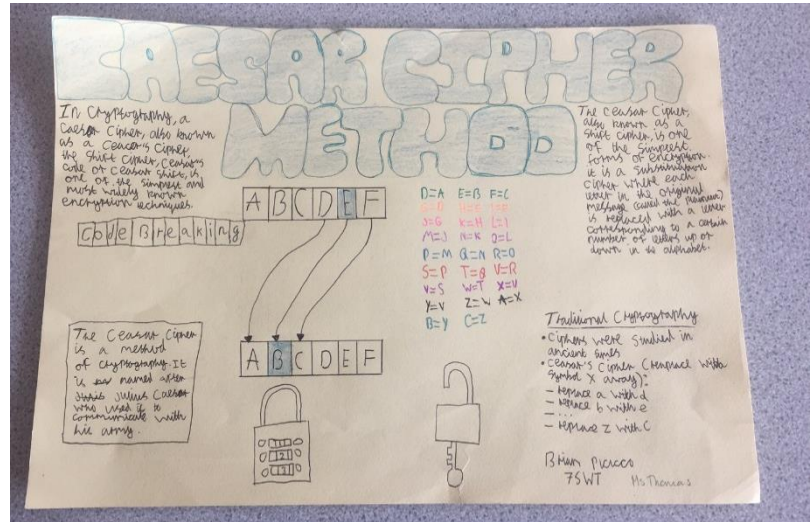 CAESAR CIPHER
METHOD
In Cryptography, a
Caesar Cipher, also known
as a Ceacer's Cipher,
the Shift Cipher, Ceasar's
code or Ceasar Shift, is
one of the simplest and
most widely known
encryption techniques.
Code Breaking
The Ceasar Cipher
is a method
of cryptography. It
is named after
Julius Caesar
who used it to
communicate with
his army.
A B C D E F
A B C D E F
D=A E=B F=C
J=G K=H L=I
M=J N=K O=L
P=M Q=N R=O
S=P T=Q V=R
V=S W=T X=V
Y=V Z=W A=X
B=Y C=Z
The Ceasar Cipher,
also known as a
shift cipher, is one
of the simplest
forms of encryption.
it is a substitution
cipher where each
letter in the original
message (called the)
is replaced with a letter
corresponding to a certain
number of letters up or
down in the alphabet.
Traditional Cryptography
• Ciphers were studied in
ancient times
• Ceasar's Cipher (replace with
symbol X away):
- replace a with d
- replace b with e
- ...
- replace z with c
Brian
7SWT Ms. Thomas